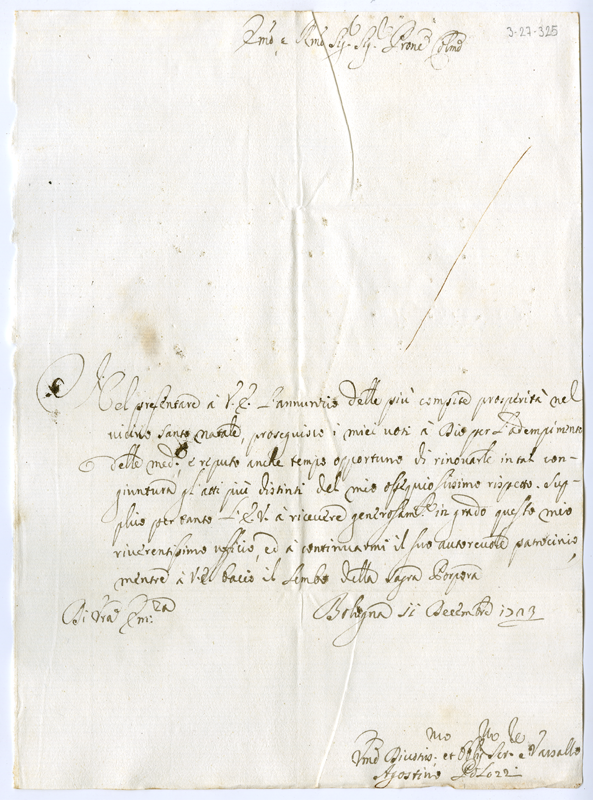 3-27-325
Emo e Rmo Sig. Sig. Prone Colmo
Nel presentare à V.E. l'annunzio delle più compite prosperità nel
vicino santo natale, proseguisco i miei voti à Dio per l'adempimento
delle med.e e reputo anche tempo opportuno di rinovarle in tal con-
giuntura gl'atti più distinti del mio ossequiosissimo rispetto. Sup-
plico per tanto l'E.V. à ricevere generosam.te in grado questo mio
riverentissimo ufficio, ed à continuarmi il suo autorevole patrocinio,
mentre à V.E. bacio il lembo della sagra Porpora
Di Vra Emza
Bologna 11 Decembre
Umo Divotis. et Obbl Ser. e Vassallo
Agostino